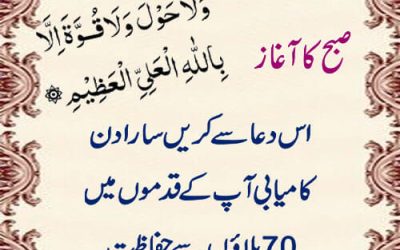 وَلَا حَوْلَ وَلَا قُوَّةَ اِلَّا
بِاللهِ الْعَلِيِّ الْعَظِيْمِ
صبح کا آغاز
اس دعا سے کریں سارا دن
کامیابی آپ کے قدموں میں
70 بلاؤں سے حفاظت